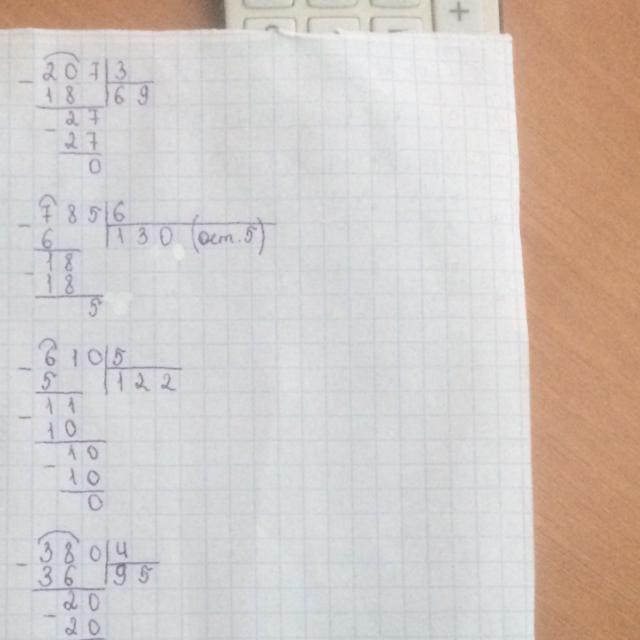 - 207|3
18 |69
- 27
27
0
- 785|6
6 |130 (ост. 5)
- 18
18
5
- 610|5
5 |122
- 11
10
- 10
10
0
- 380|4
36 |95
- 20
20
+